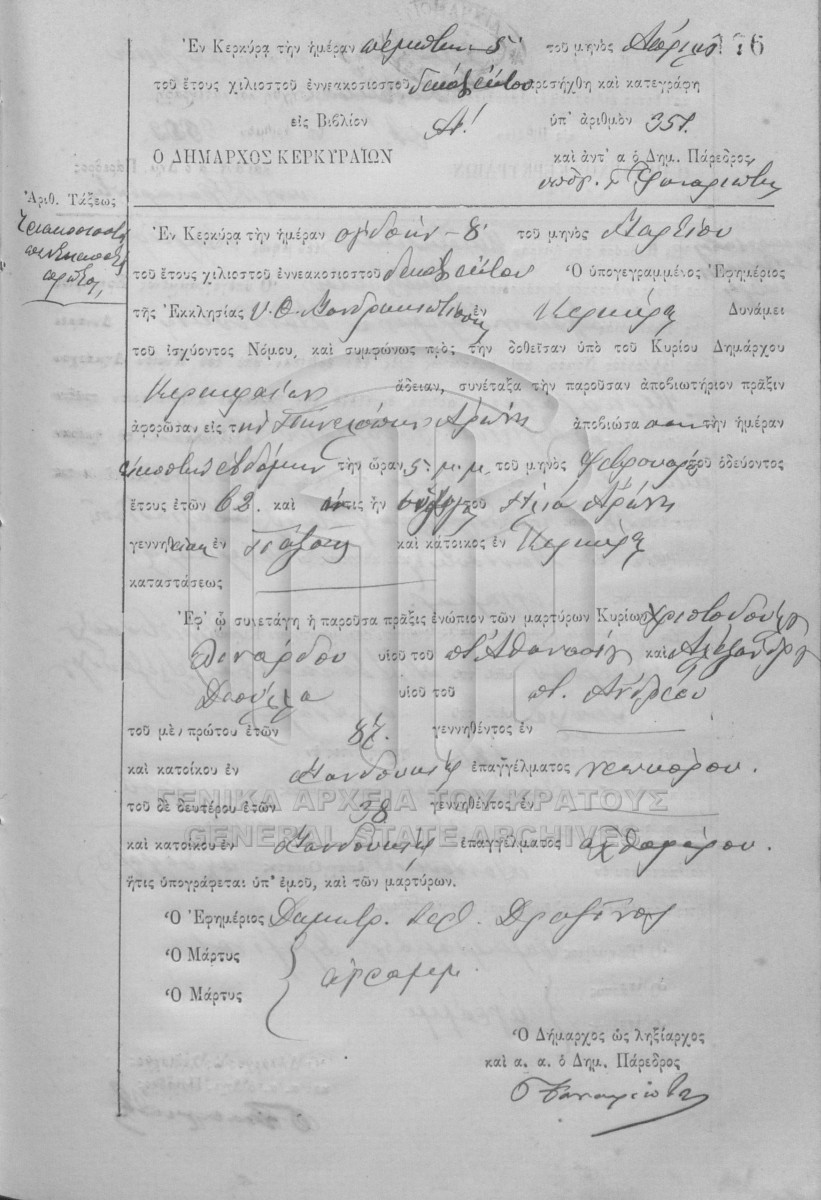 Ἐν Κερκύρᾳ τὴν ἡμέραν πέμπτην 5 τοῦ μηνὸς Ἀπριλίου 176
τοῦ ἔτους χιλιοστοῦ ἐννεακοσιοστοῦ προσήχθη καὶ κατεγράφη
εἰς Βιβλίον Α! ὑπ' ἀριθμὸν 351.
Ο ΔΗΜΑΡΧΟΣ ΚΕΡΚΥΡΑΙΩΝ καὶ ἀντ' α ὁ Δημ. Πάρεδρος
Ἀριθ. Τάξεως
Ἐν Κερκύρᾳ τὴν ἡμέραν ὀγδόην - 8 τοῦ μηνὸς Μαρτίου
τοῦ ἔτους χιλιοστοῦ ἐννεακοσιοστοῦ Ὁ ὑπογεγραμμένος Ἐφημέριος
τῆς Ἐκκλησίας Υ. Θ. Μανδρακιωτίσσης ἐν Κερκύρᾳ Δυνάμει
τοῦ ἰσχύοντος Νόμου, καὶ συμφώνως πρὸς τὴν δοθεῖσαν ὑπὸ τοῦ Κυρίου Δημάρχου
Κερκυραίων ἄδειαν, συνέταξα τὴν παροῦσαν ἀποβιωτήριον πρᾶξιν
ἀφορῶσαν εἰς τὴν Πηνελόπην ἀποβιώσασαν τὴν ἡμέραν
εἰκοστὴν ἑβδόμην τὴν ὥραν 5. μ.μ. τοῦ μηνὸς Φεβρουαρίου τοῦ ὁδεύοντος
ἔτους ἐτῶν 62 καὶ ἥτις ἦν σύζυγος τοῦ Ἠλία
γεννηθεῖσαν ἐν καὶ κάτοικος ἐν Κερκύρᾳ
καταστάσεως
Ἐφ' ᾧ συνετάγη ἡ παροῦσα πρᾶξις ἐνώπιον τῶν μαρτύρων Κυρίων Χριστοδούλου
Λινάρδου υἱοῦ τοῦ π. Ἀθανασίου καὶ Ἀλεξάνδρου
υἱοῦ τοῦ π. Ἀνδρέου
τοῦ μὲν πρώτου ἐτῶν γεννηθέντος ἐν
καὶ κατοίκου ἐν Μανδουκίῳ ἐπαγγέλματος νεωκόρου.
τοῦ δὲ δευτέρου ἐτῶν 38 γεννηθέντος ἐν
καὶ κατοίκου ἐν Μανδουκίῳ ἐπαγγέλματος ἀχθοφόρου.
ἥτις ὑπογράφεται ὑπ' ἐμοῦ, καὶ τῶν μαρτύρων.
Ὁ Ἐφημέριος
Ὁ Μάρτυς
ἀγράμμ.
Ὁ Μάρτυς
Ὁ Δήμαρχος ὡς ληξίαρχος
καὶ α. α. ὁ Δημ. Πάρεδρος
ΓΕΝΙΚΑ ΑΡΧΕΙΑ ΤΟΥ ΚΡΑΤΟΥΣ
GENERAL STATE ARCHIVES